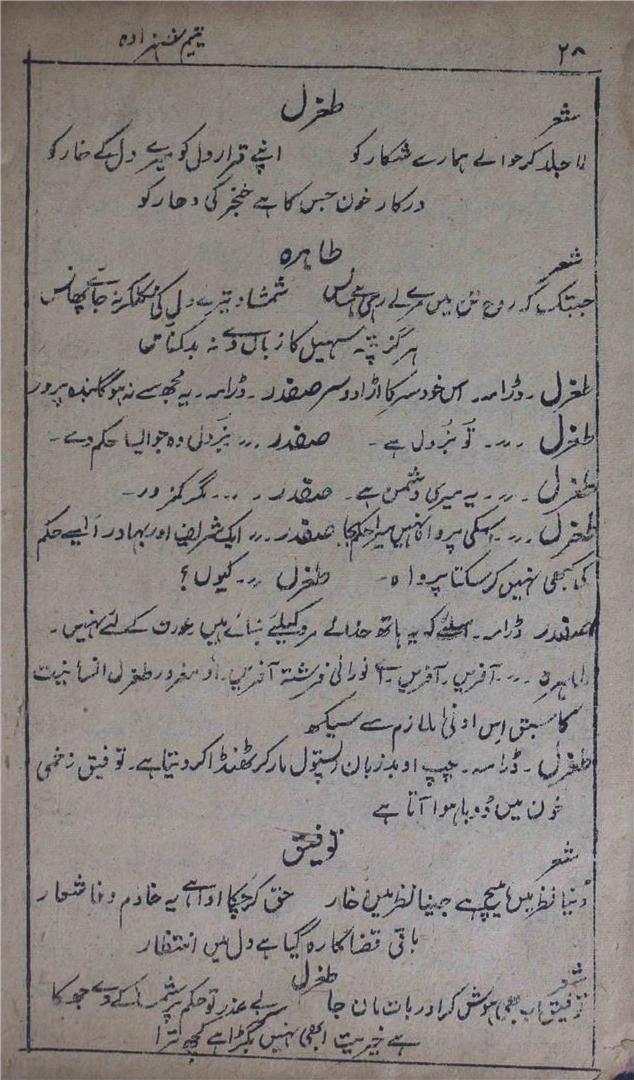 ۲۸ یتیم شہزادہ
طغرل
شعر
لا جلد کر حوالے ہمارے شکار کو اپنے قرار دل کو میرے دل کے خار کو
درکار خون جس کا ہے خنجر کی دھار کو
طاہرہ
شعر
جبتک کہ روح تن میں مرے لے رہی ہے سانس شمشاد تیرے دل کی نکلکر نہ جائے پھانس
ہرگز پتہ سہیل کا زباں دے نہ بدکناس
طغرل ۔ ڈرامہ ۔ اس خودسر کا اڑادو سر صفدر ۔ ڈرامہ ۔ یہ مجھ سے نہ ہوگا بندہ پرور
طغرل ۔ رر ۔ تو بُزدل ہے ۔ صفدر ۔ رر ۔ بُزدلی وہ جو ایسا حکم دے ۔
طغرل ۔ رر ۔ یہ میری دشمن ہے ۔ صفدر ۔ رر ۔ مگر کمزور ۔
طغرل ۔ رر ۔ اسکی پروا نہیں میرا حکم بجا صفدر ۔ رر ۔ ایک شریف اور بہادر ایسے حکم
کی کبھی نہیں کرسکتا پرواہ ۔ طغرل ۔ رر ۔ کیوں ؟
صفدر ڈرامہ ۔ اسلئے کہ یہ ہاتھ خدا نے مرد کیلئے بنائے ہیں عورت کے لئے نہیں ۔
طاہرہ ۔ رر ۔ آفریں ۔ آفریں ۔ اے نورانی فرشتہ آفریں ۔ او مغرور طغرل انسانیت
کا سبق اِس ادنیٰ ملازم سے سیکھ
طغرل ۔ ڈرامہ ۔ چپ او بدزبان (پستول مار کر ٹھنڈا کر دیتا ہے ۔ توفیق زخمی
خون میں ڈوبا ہوا آتا ہے
توفیق
شعر
دُنیا نظر میں ہیچ ہے جینا نظر میں خار حق کرچکا ادا ہے یہ خادم وفا شعار
باقی قضا کا رہ گیا ہے دل میں انتظار
طغرل
شعر
توفیق اب بھی ہوش کر اور بات مان جا بے عذر تو حکم پر سَر کے دے جھکا
ہے خیریت ابھی نہیں بگڑا ہے کچھ ترا